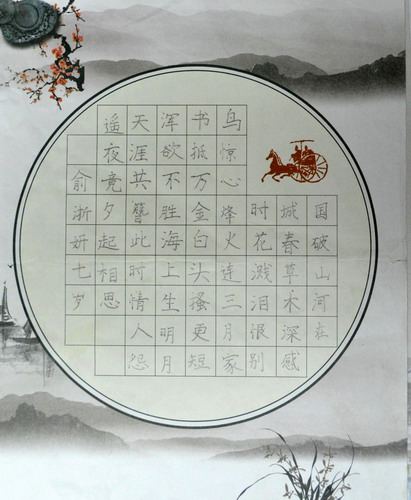 国破山河在
城春草木深感
时花溅泪恨别
鸟惊心烽火连三月家
书抵万金白头搔更短
浑欲不胜海上生明月
天涯共簪此时情人怨
遥夜竟夕起相思
俞浙妍七岁